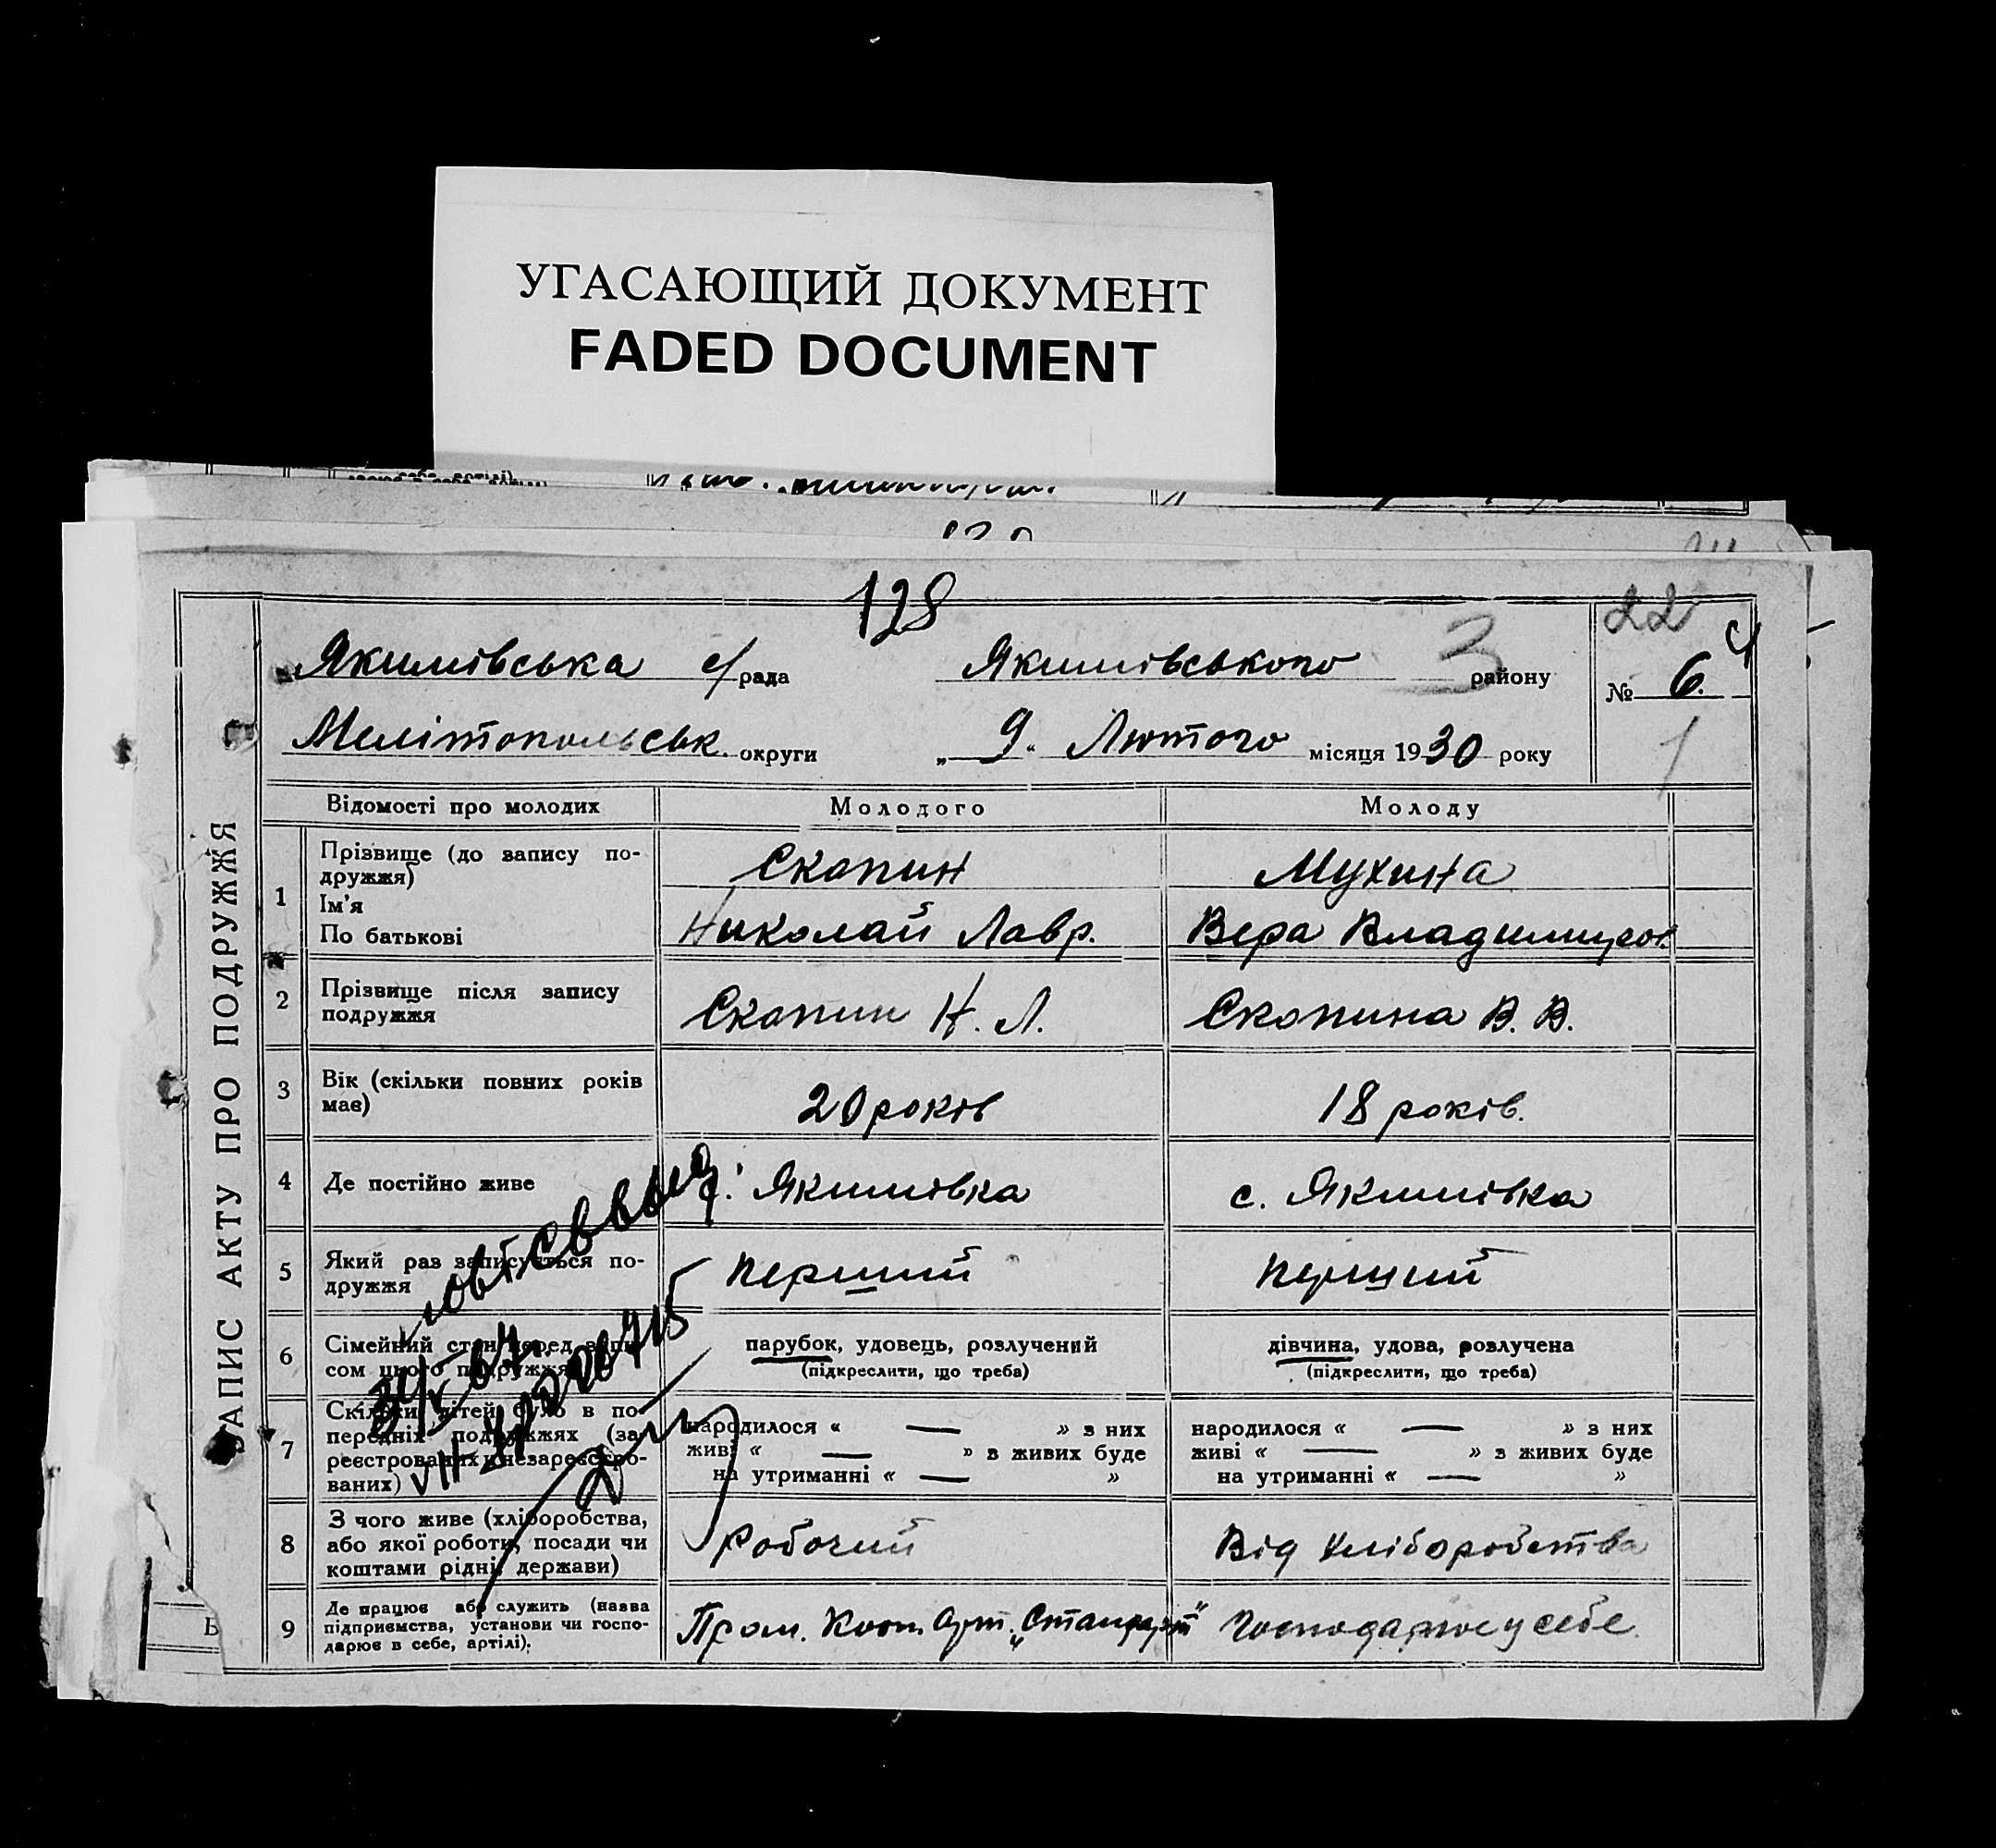 УГАСАЮЩИЙ ДОКУМЕНТ
FADED DOCUMENT
128
22
Якимівська с/рада Якимівського 3 району № 6
Мелітопольськ. округи „ 9 " Лютого місяця 1930 року
ЗАПИС АКТУ ПРО ПОДРУЖЖЯ
Відомості про молодих Молодого Молоду
1 Прізвище (до запису по-
дружжя) Скопин Мухина
Ім'я
По батькові Николай Лавр. Вера Владимиров.
2 Прізвище після запису
подружжя Скопин Н. Л. Скопина В. В.
3 Вік (скільки повних років
має) 20 років 18 років.
4 Де постійно живе с. Якимівка с. Якимівка
5 Який раз записується по-
дружжя перший перший
6 Сімейний стан перед запи-
сом цього подружжя
парубок, удовець, розлучений дівчина, удова, розлучена
(підкреслити, що треба) (підкреслити, що треба)
7 Скільки дітей було в по-
передніх подружжях (за-
реєстрованих і незареєстро-
ваних)
народилося « — » з них народилося « — » з них
живі « — » з живих буде живі « — » з живих буде
на утриманні « — » на утриманні « — »
8 З чого живе (хліборобства,
або якої роботи, посади чи
коштами рідні, держави) Робочий Від хліборобства
9 Де працює або служить (назва
підприємства, установи чи госпо-
дарює в себе, артілі). Пром. Кооп. Арт. „Стандарт" Господарює у себе.